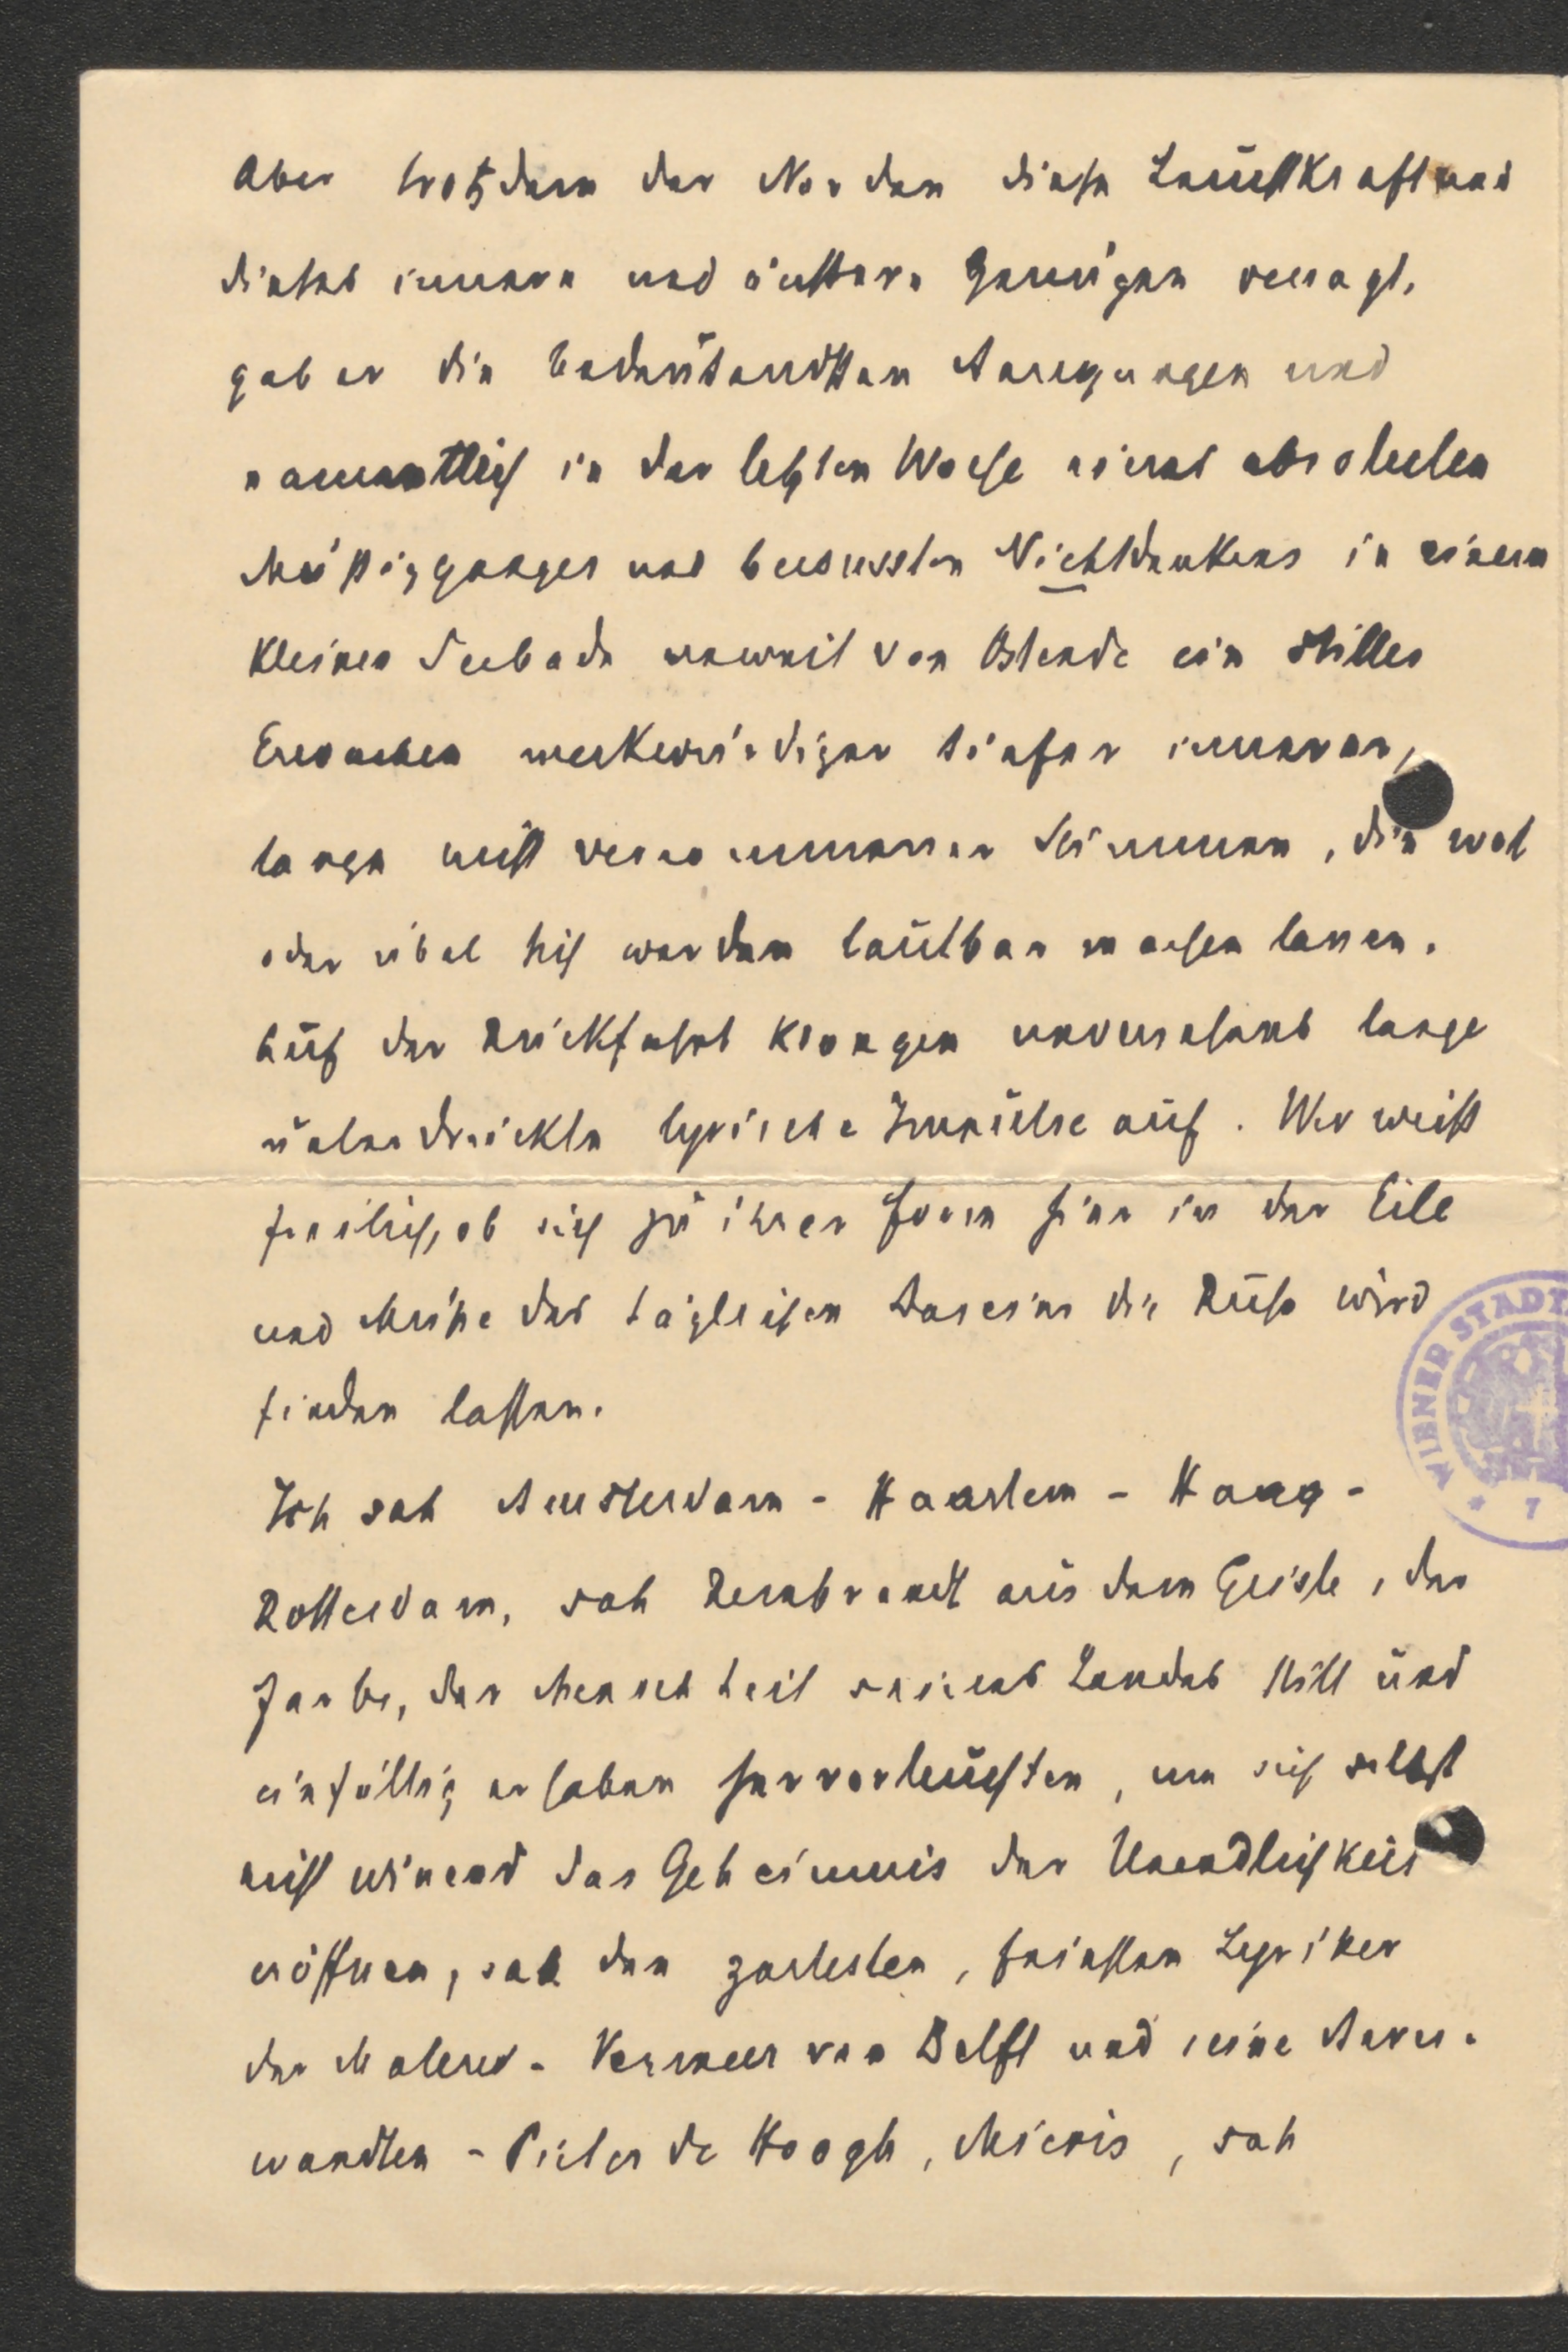 Aber trotzdem der Norden diese Leuchtkraft und
dieses innere und äussere Genügen versagt,
gab er die bedeutendsten Anregungen und
namentlich in der letzten Woche eines absoluten
Müssigganges und bewussten Nichtdenkens in einem
kleinen Seebade unweit von Ostende ein stilles
Erwachen merkwürdiger tiefer innerer,
lange nicht vernommener Stimmen, die wol
oder übel sich werden lautbar machen lassen.
Auf der Rückfahrt klangen unversehens lange
unterdrückte lyrische Impulse auf. Wer weiss
freilich, ob sich zu ihrer Form hier in der Eile
und Mühe des täglichen Daseins die Ruhe wird
finden lassen.
Ich sah Amsterdam - Haarlem - Haag -
Rotterdam, sah Rembrandt aus dem Geiste, der
Farbe, der Menschheit seines Landes still und
einfältig erhaben hervorleuchten, um sich selbst
nicht wissend das Geheimnis der Unendlichkeit
eröffnen, sah den zartesten, feinsten Lyriker
der Malerei - Vermeer van Delft und seine Anver-
wandten - Pieter de Hoogh, Mieris, sah
WIENER STADT
* 7